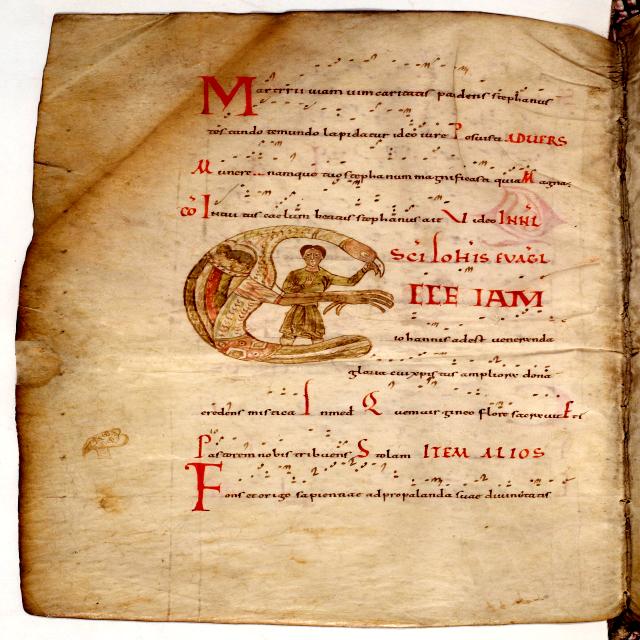 Martyrii viam vim caritatis pandens stephanus
toscundo temundo lapidatur ideo iure Posuisti ADVERS
Munere namque tuo stephanum magnificasti quia Magna
cō Intrauit us caelum beatus stephanus ait Video INNI
SCI IOHIS EVAGL
ECCE IAM
iohannis adest ueneranda
gloria cui xpistus ampliora dona
credens mistica In med Quem uirgineo flore sacrauit Et
Pastorem nobis tribuens Stolam ITEM ALIOS
Fons et origo sapientiae ad propalanda suae diuinitatis